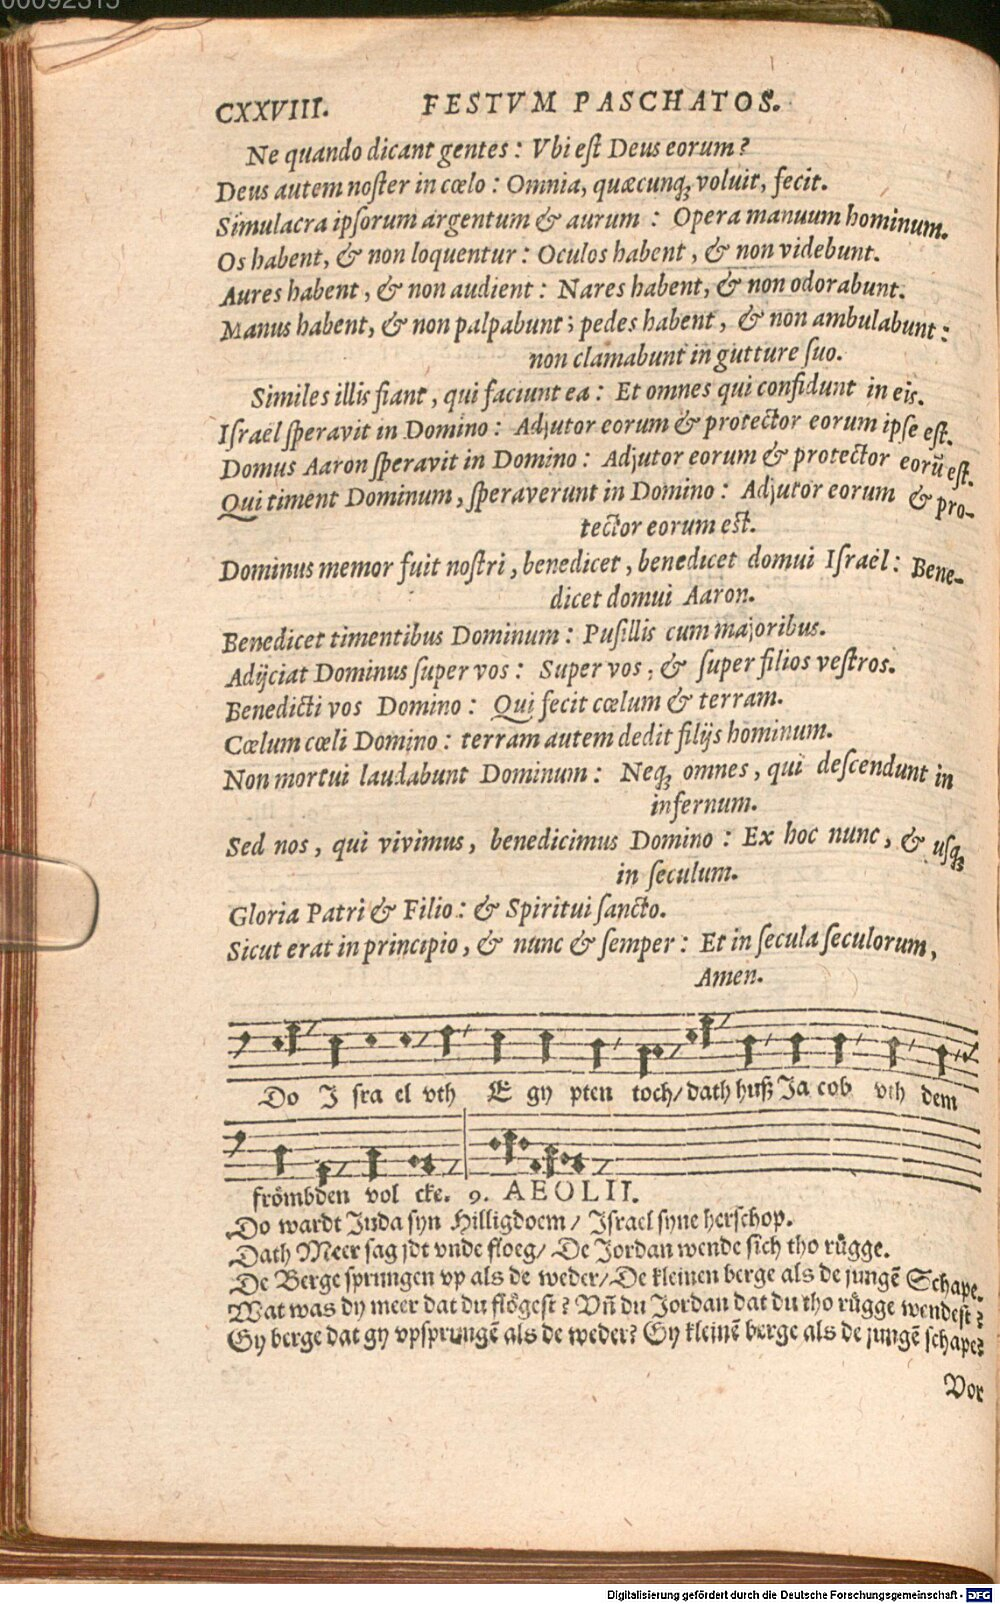 00092315
CXXVIII. FESTVM PASCHATOS.
Ne quando dicant gentes : Vbi eſt Deus eorum ?
Deus autem noſter in cœlo : Omnia, quæcunq; voluit, fecit.
Simulacra ipſorum argentum & aurum : Opera manuum hominum.
Os habent, & non loquentur : Oculos habent, & non videbunt.
Aures habent, & non audient : Nares habent, & non odorabunt.
Manus habent, & non palpabunt ; pedes habent, & non ambulabunt :
non clamabunt in gutture ſuo.
Similes illis fiant, qui faciunt ea : Et omnes qui confidunt in eis.
Iſraël ſperavit in Domino : Adjutor eorum & protector eorum ipſe eſt.
Domus Aaron ſperavit in Domino : Adjutor eorum & protector eorū eſt.
Qui timent Dominum, ſperaverunt in Domino : Adjutor eorum & pro-
tector eorum est.
Dominus memor fuit noſtri, benedicet, benedicet domui Iſraël : Bene-
dicet domui Aaron.
Benedicet timentibus Dominum : Puſillis cum majoribus.
Adijciat Dominus ſuper vos : Super vos, & ſuper filios veſtros.
Benedicti vos Domino : Qui fecit cœlum & terram.
Cœlum cœli Domino : terram autem dedit filijs hominum.
Non mortui laudabunt Dominum : Neq; omnes, qui deſcendunt in
infernum.
Sed nos, qui vivimus, benedicimus Domino : Ex hoc nunc, & uſq;
in ſeculum.
Gloria Patri & Filio : & Spiritui ſancto.
Sicut erat in principio, & nunc & ſemper : Et in ſecula ſeculorum,
Amen.
Do I ſra el vth E gy pten toch/ dath huß Ja cob vth dem
frömbden vol cke. 9. AEOLII.
Do wardt Juda ſyn Hilligdoem/ Iſrael ſyne herſchop.
Dath Meer ſag jdt vnde floeg/ De Jordan wende ſich tho rügge.
De Berge ſprungen vp als de weder/ De kleinen berge als de jungē Schape.
Wat was dy meer dat du flögeſt ? Vñ du Jordan dat du tho rügge wendeſt ?
Gy berge dat gy vpſprungē als de weder? Gy kleinē berge als de jungē ſchape?
Vor
Digitalisierung gefördert durch die Deutsche Forschungsgemeinschaft - DFG